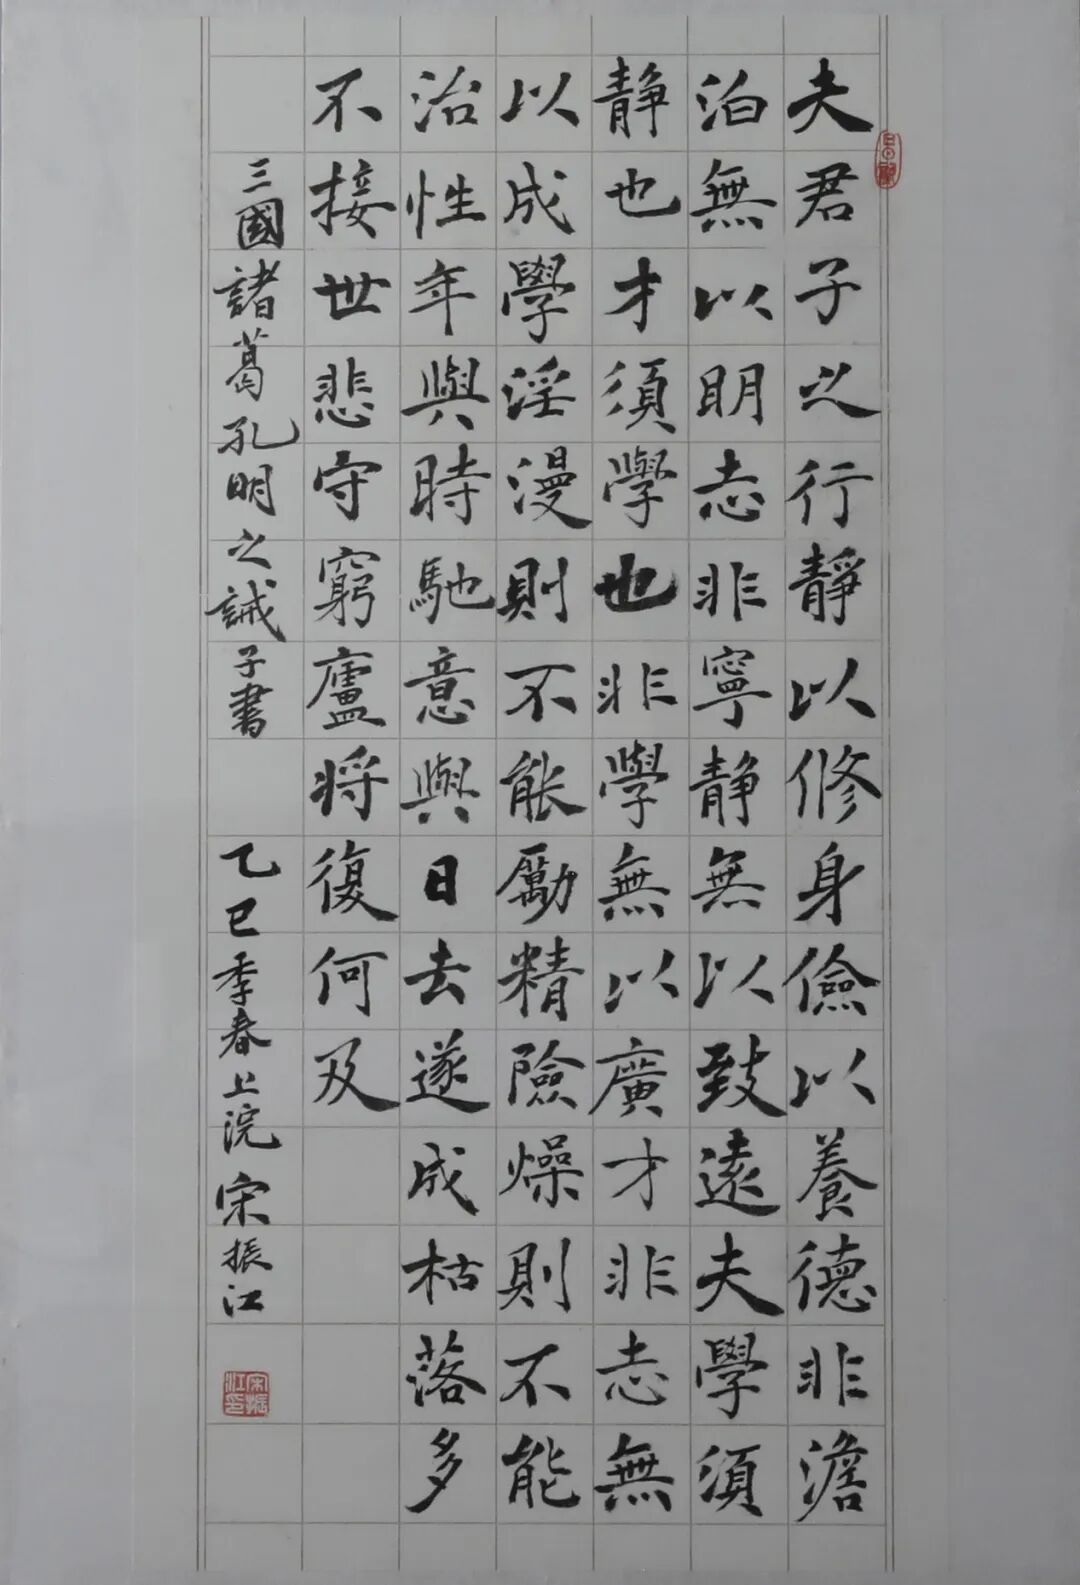 夫君子之行靜以修身儉以養德非澹
泊無以明志非寧静無以致遠夫學須
静也才須學也非學無以廣才非志無
以成學淫漫則不能勵精險燥則不能
治性年與時馳意與日去遂成枯落多
不接世悲守窮廬將復何及
三國諸葛孔明之誡子書
乙巳季春上浣宋振江
宋振江印